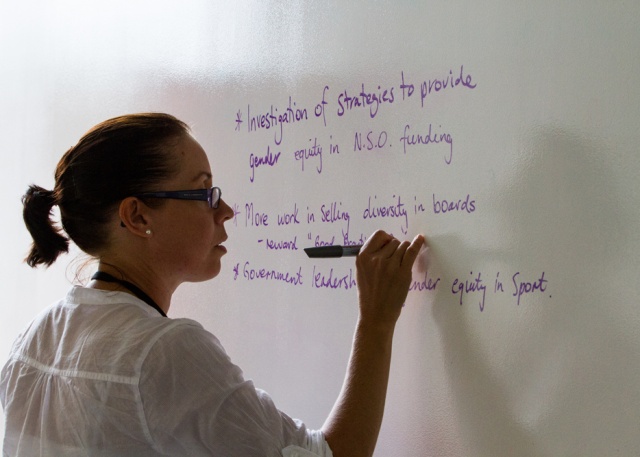 * Investigation of strategies to provide
gender equity in N.S.O. funding
* More work in selling diversity in boards
- reward "Good
* Government equity in Sport.